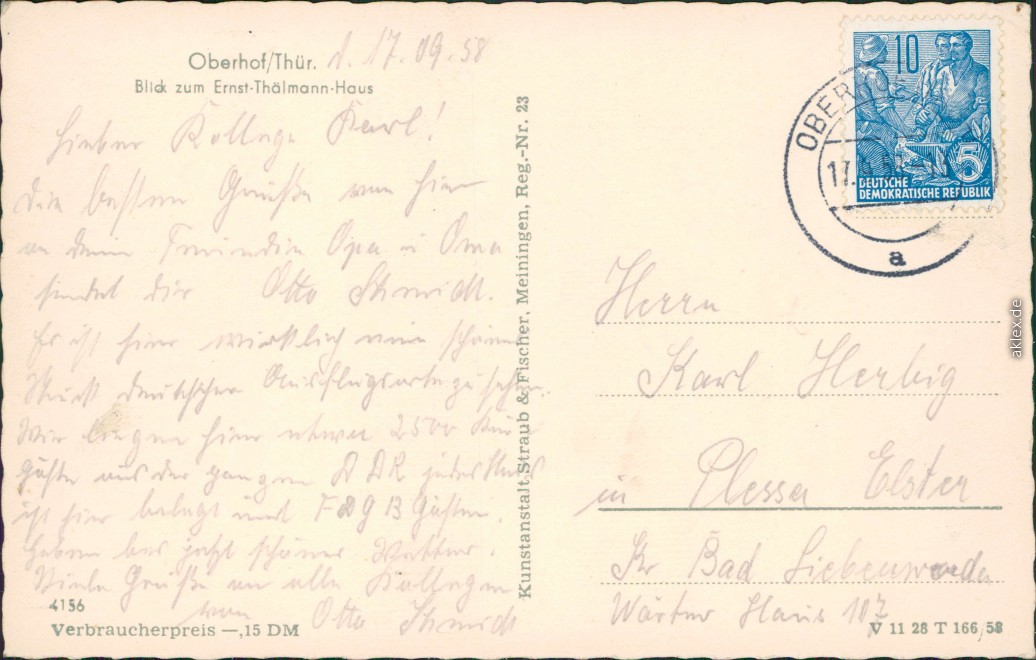 Oberhof/Thür. d. 17.09.58
Blick zum Ernst-Thälmann-Haus
Lieber Kollege Karl!
Die besten Grüße von hier
Opa u Oma
sendet dir Otto Schmidt.
Es ist hier wirklich eine schöne
deutscher Ausflugsorte zu sehen.
Wir liegen hier etwa 2500 Kur
gäste aus der ganzen DDR jedes Haus
ist hier belegt mit FDGB Gästen.
Haben bis jetzt schönes Wetter.
Viele Grüße an alle Kollegen
von Otto Schmidt
4156
Verbraucherpreis —,15 DM
Kunstanstalt Straub & Fischer, Meiningen, Reg.-Nr. 23
10
5
DEUTSCHE
DEMOKRATISCHE REPUBLIK
a
Herrn
Karl Herbig
in Plessa Elster
Kr Bad Liebenwerda
Wärter Haus 107
V 11 28 T 166/58
aklex.de